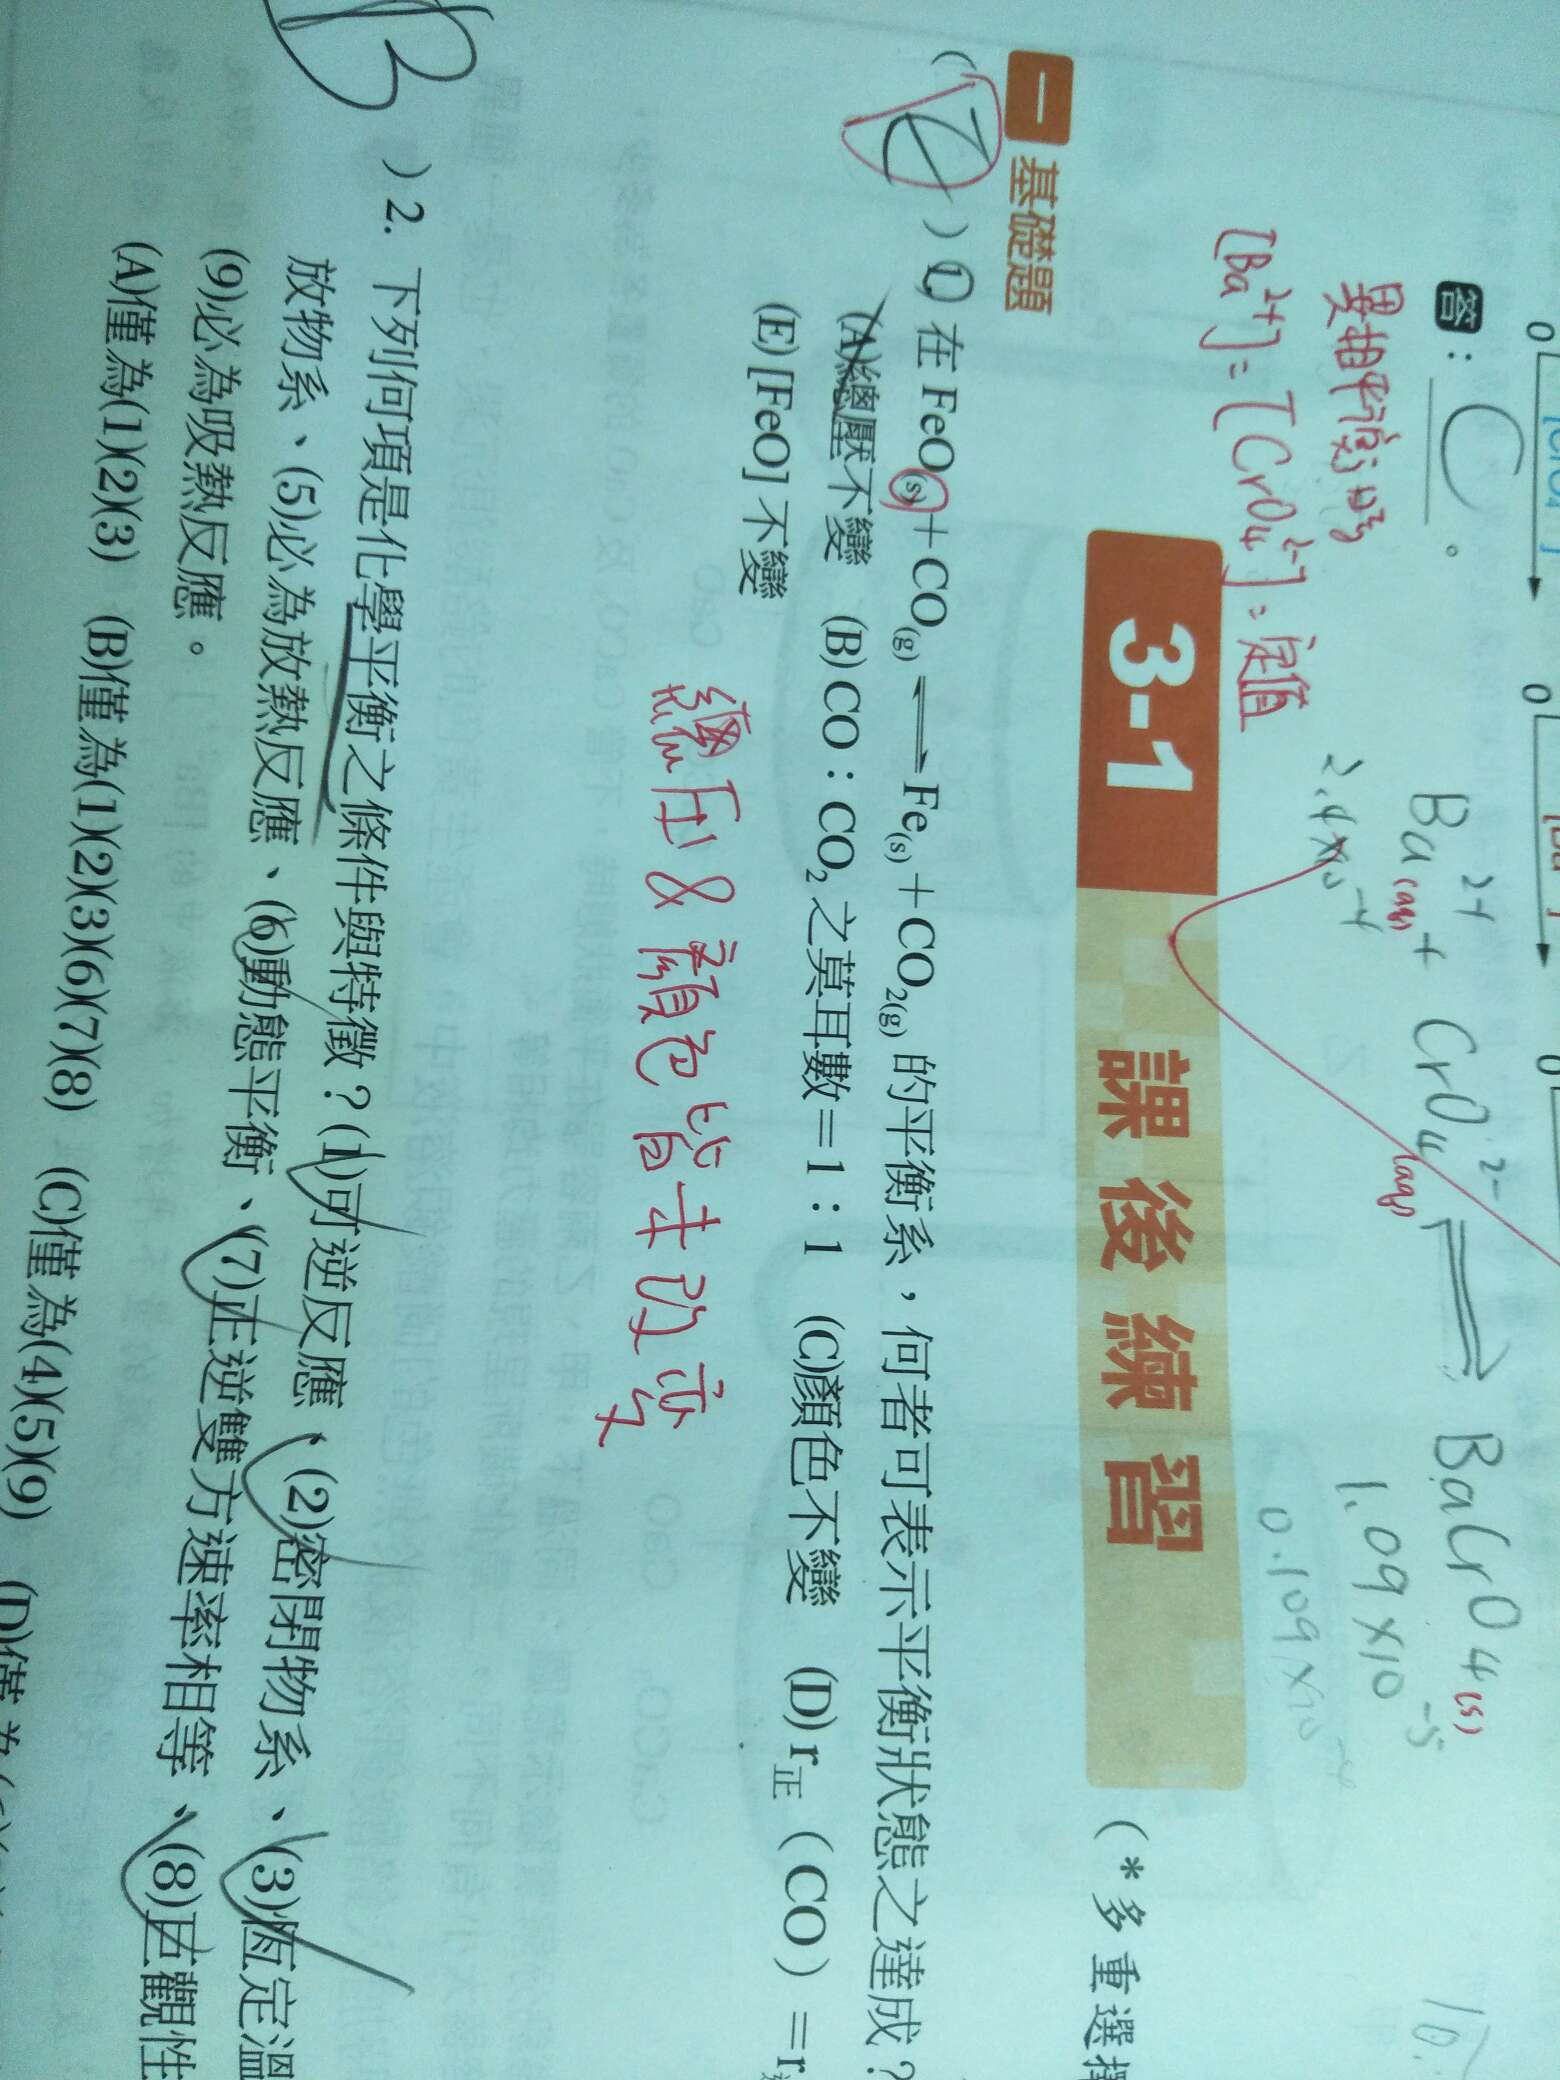 答：C。
Ba²⁺(aq) + CrO₄²⁻(aq) ⇌ BaCrO₄(s)
異相平衡時
2.4×10⁻⁴
1.09×10⁻⁵
[Ba²⁺]=[CrO₄²⁻]=定值
3-1 課後練習 (*多重選擇
一 基礎題
( ) 1. 在 FeO(s)＋CO(g) ⇌ Fe(s)＋CO₂(g) 的平衡系，何者可表示平衡狀態之達成？
(A)總壓不變 (B) CO：CO₂ 之莫耳數＝1：1 (C)顏色不變 (D) r正（CO）＝r逆
(E) [FeO] 不變
總壓&顏色皆未改變
B ) 2. 下列何項是化學平衡之條件與特徵？(1)可逆反應、(2)密閉物系、(3)恆定溫
放物系、(5)必為放熱反應、(6)動態平衡、(7)正逆雙方速率相等、(8)巨觀性
(9)必為吸熱反應。
(A)僅為(1)(2)(3) (B)僅為(1)(2)(3)(6)(7)(8) (C)僅為(4)(5)(9) (D)僅為